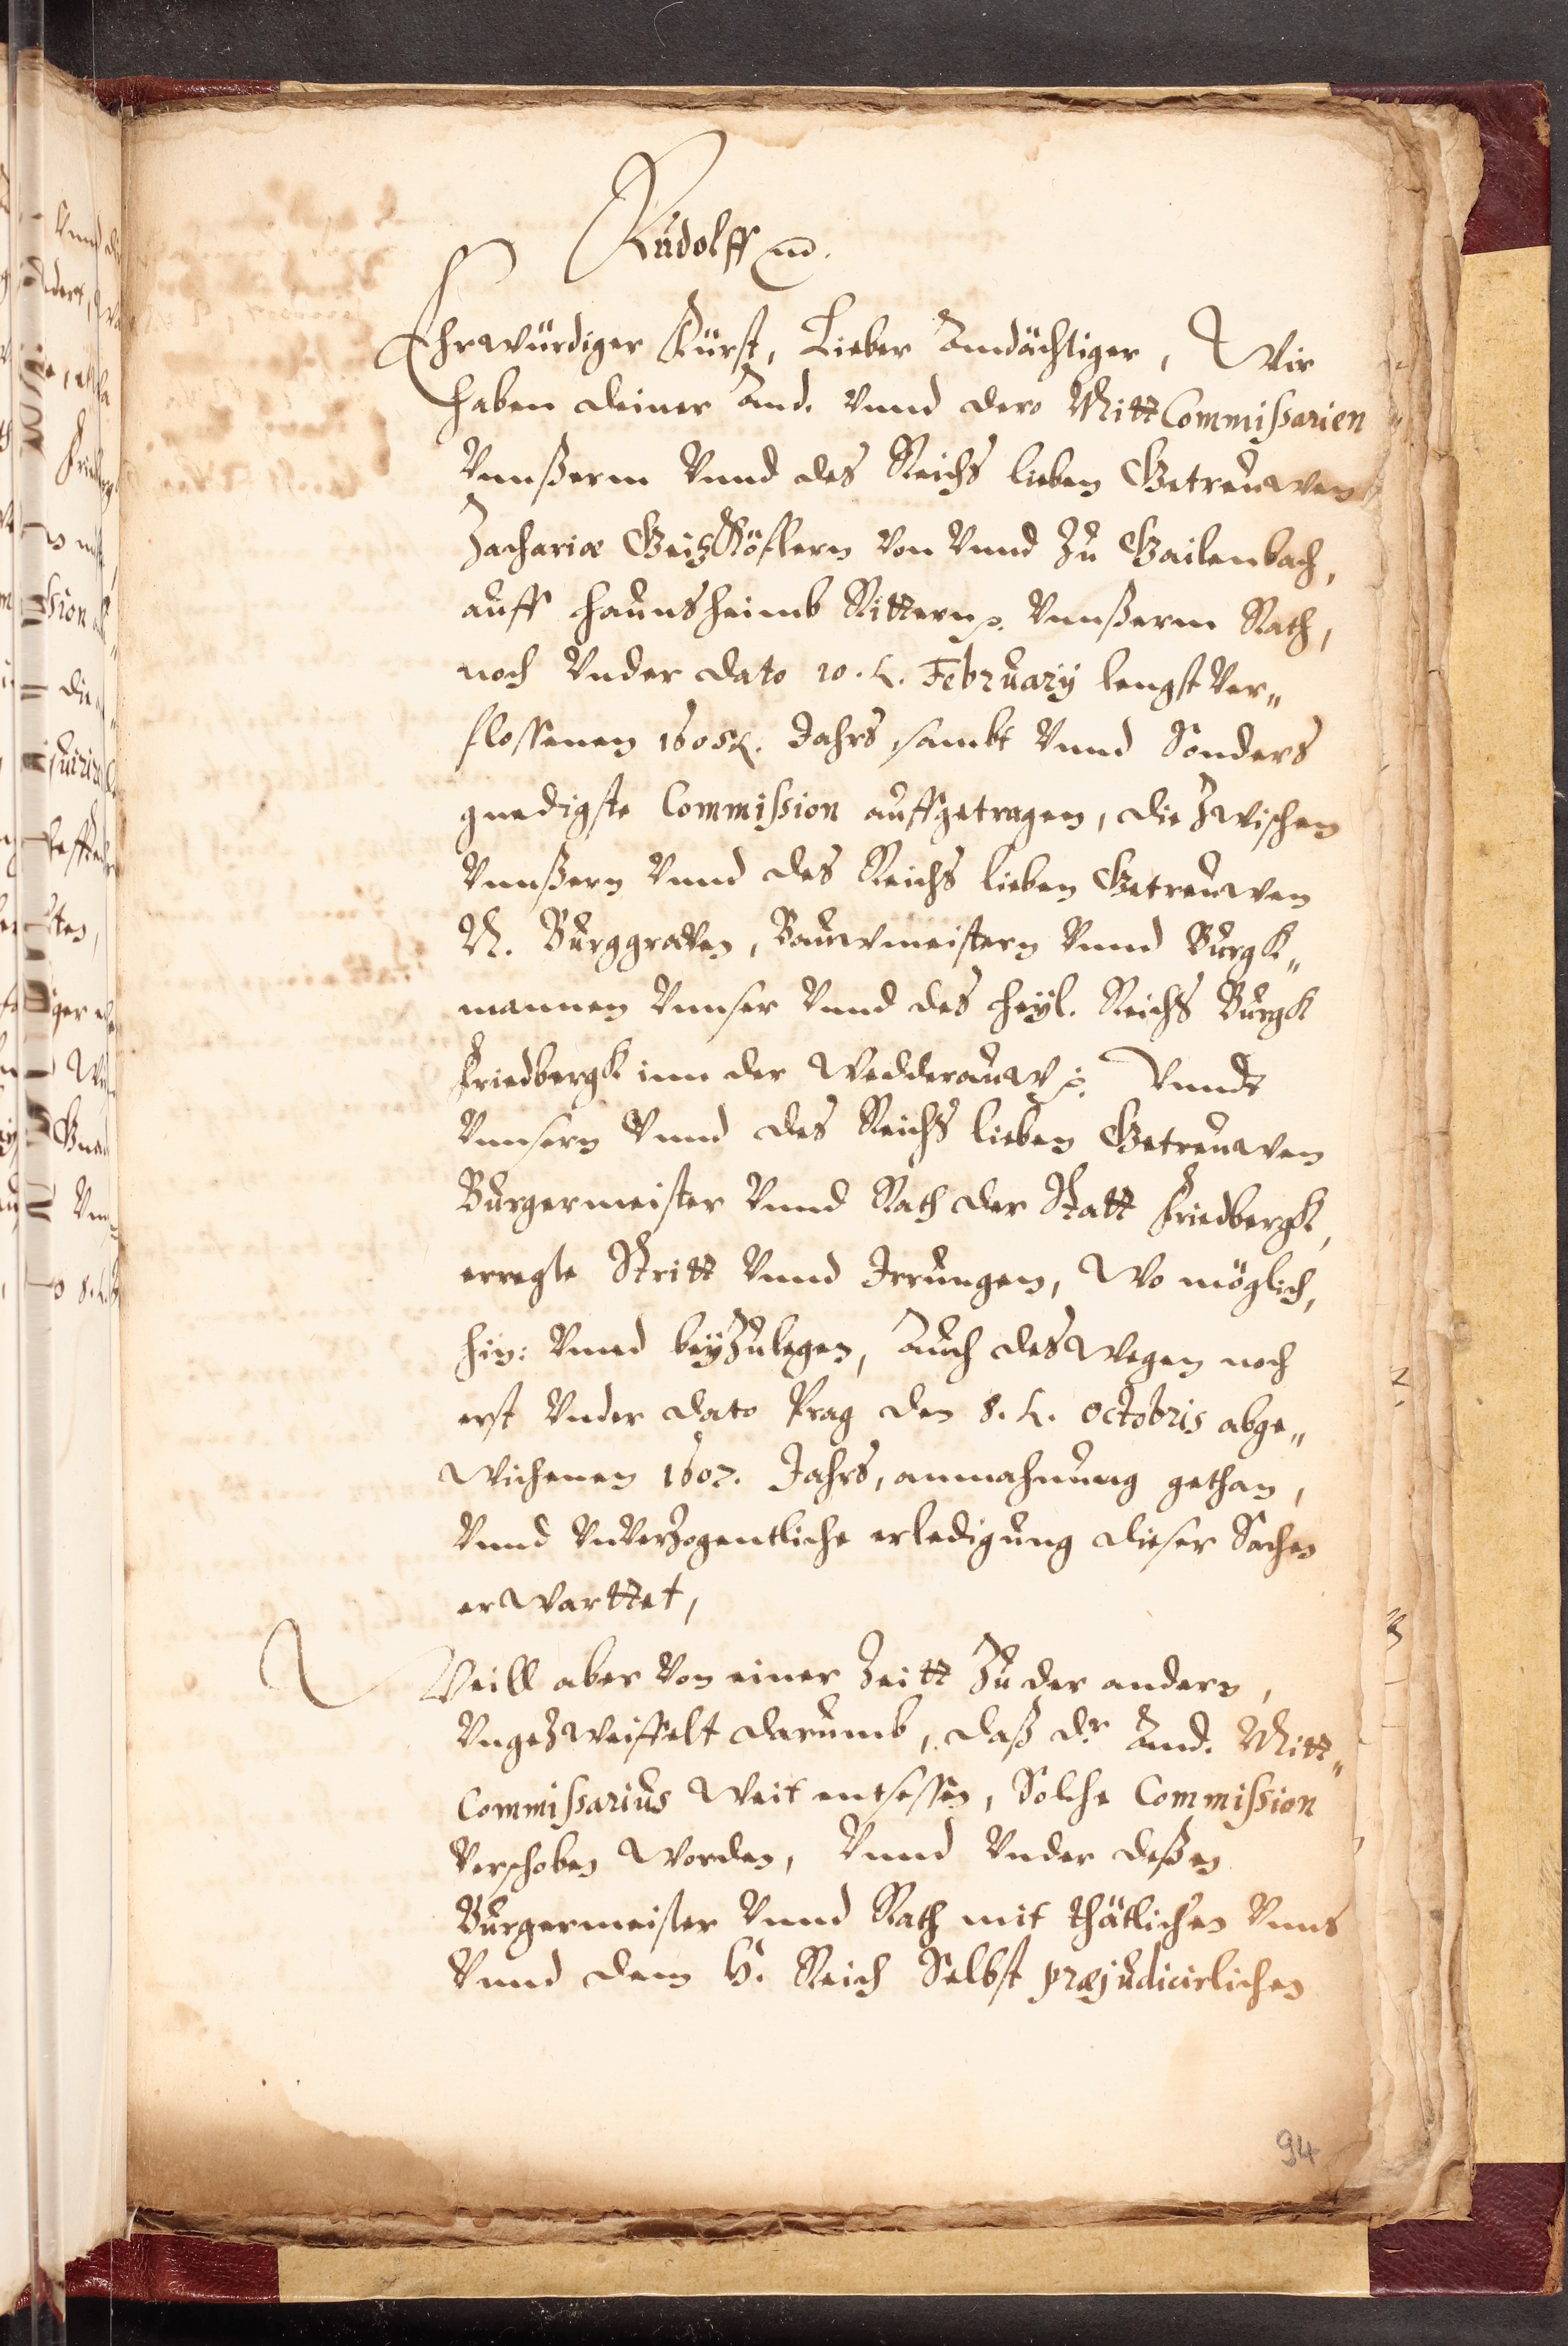 Rudolff
Ehrwürdiger Fürst, Lieber Andächtiger, Wir
haben deiner And. Vnnd dero Mitt Commißarien
Vnnßerm Vnnd des Reichs lieben Getreuwen
Zachariæ Geitzkofflern von Vnnd Zu Gailenbach,
auff Haunsheimb Rittern Vnnßerm Rath,
noch Vnder dato 10. February lengst Ver„
flossenen Jahrs, sambt Vnnd Sonders
gnedigste Commißion auffgetragen, die Zwischen
Vnnßern Vnnd des Reichs lieben Getreuwen
N. Burggraven, Bauwmeistern Vnnd Burgk„
mannen Vnnser Vnnd des Heyl. Reichs Burgk
Friedbergk inn der Wedderauw Vnndt
Vnnsern Vnnd des Reichs lieben Getreuwen
Burgermeister Vnnd Rath der Statt Friedbergk,
erregte Stritt Vnnd Irrungen, Wo möglich,
hin: Vnnd beyZulegen, Auch desWegen noch
erst Vnder dato Prag den 8. Octobris abge„
Wichenen 1607. Jahrs, anmahnung gethan,
Vnnd VnVerzogentliche erledigung dieser Sachen
erWarttet,
Weill aber Von einer Zeitt Zu der andern,
VngeZweiffelt darumb, daß dr And. Mitt„
Commißarius Weit entsessen, Solche Commißion
Verschoben Worden, Vnnd Vnder deßen
Burgermeister Vnnd Rath mit thätlichen Vnns
Vnnd dem H. Reich Selbst præjudicirlichen
94